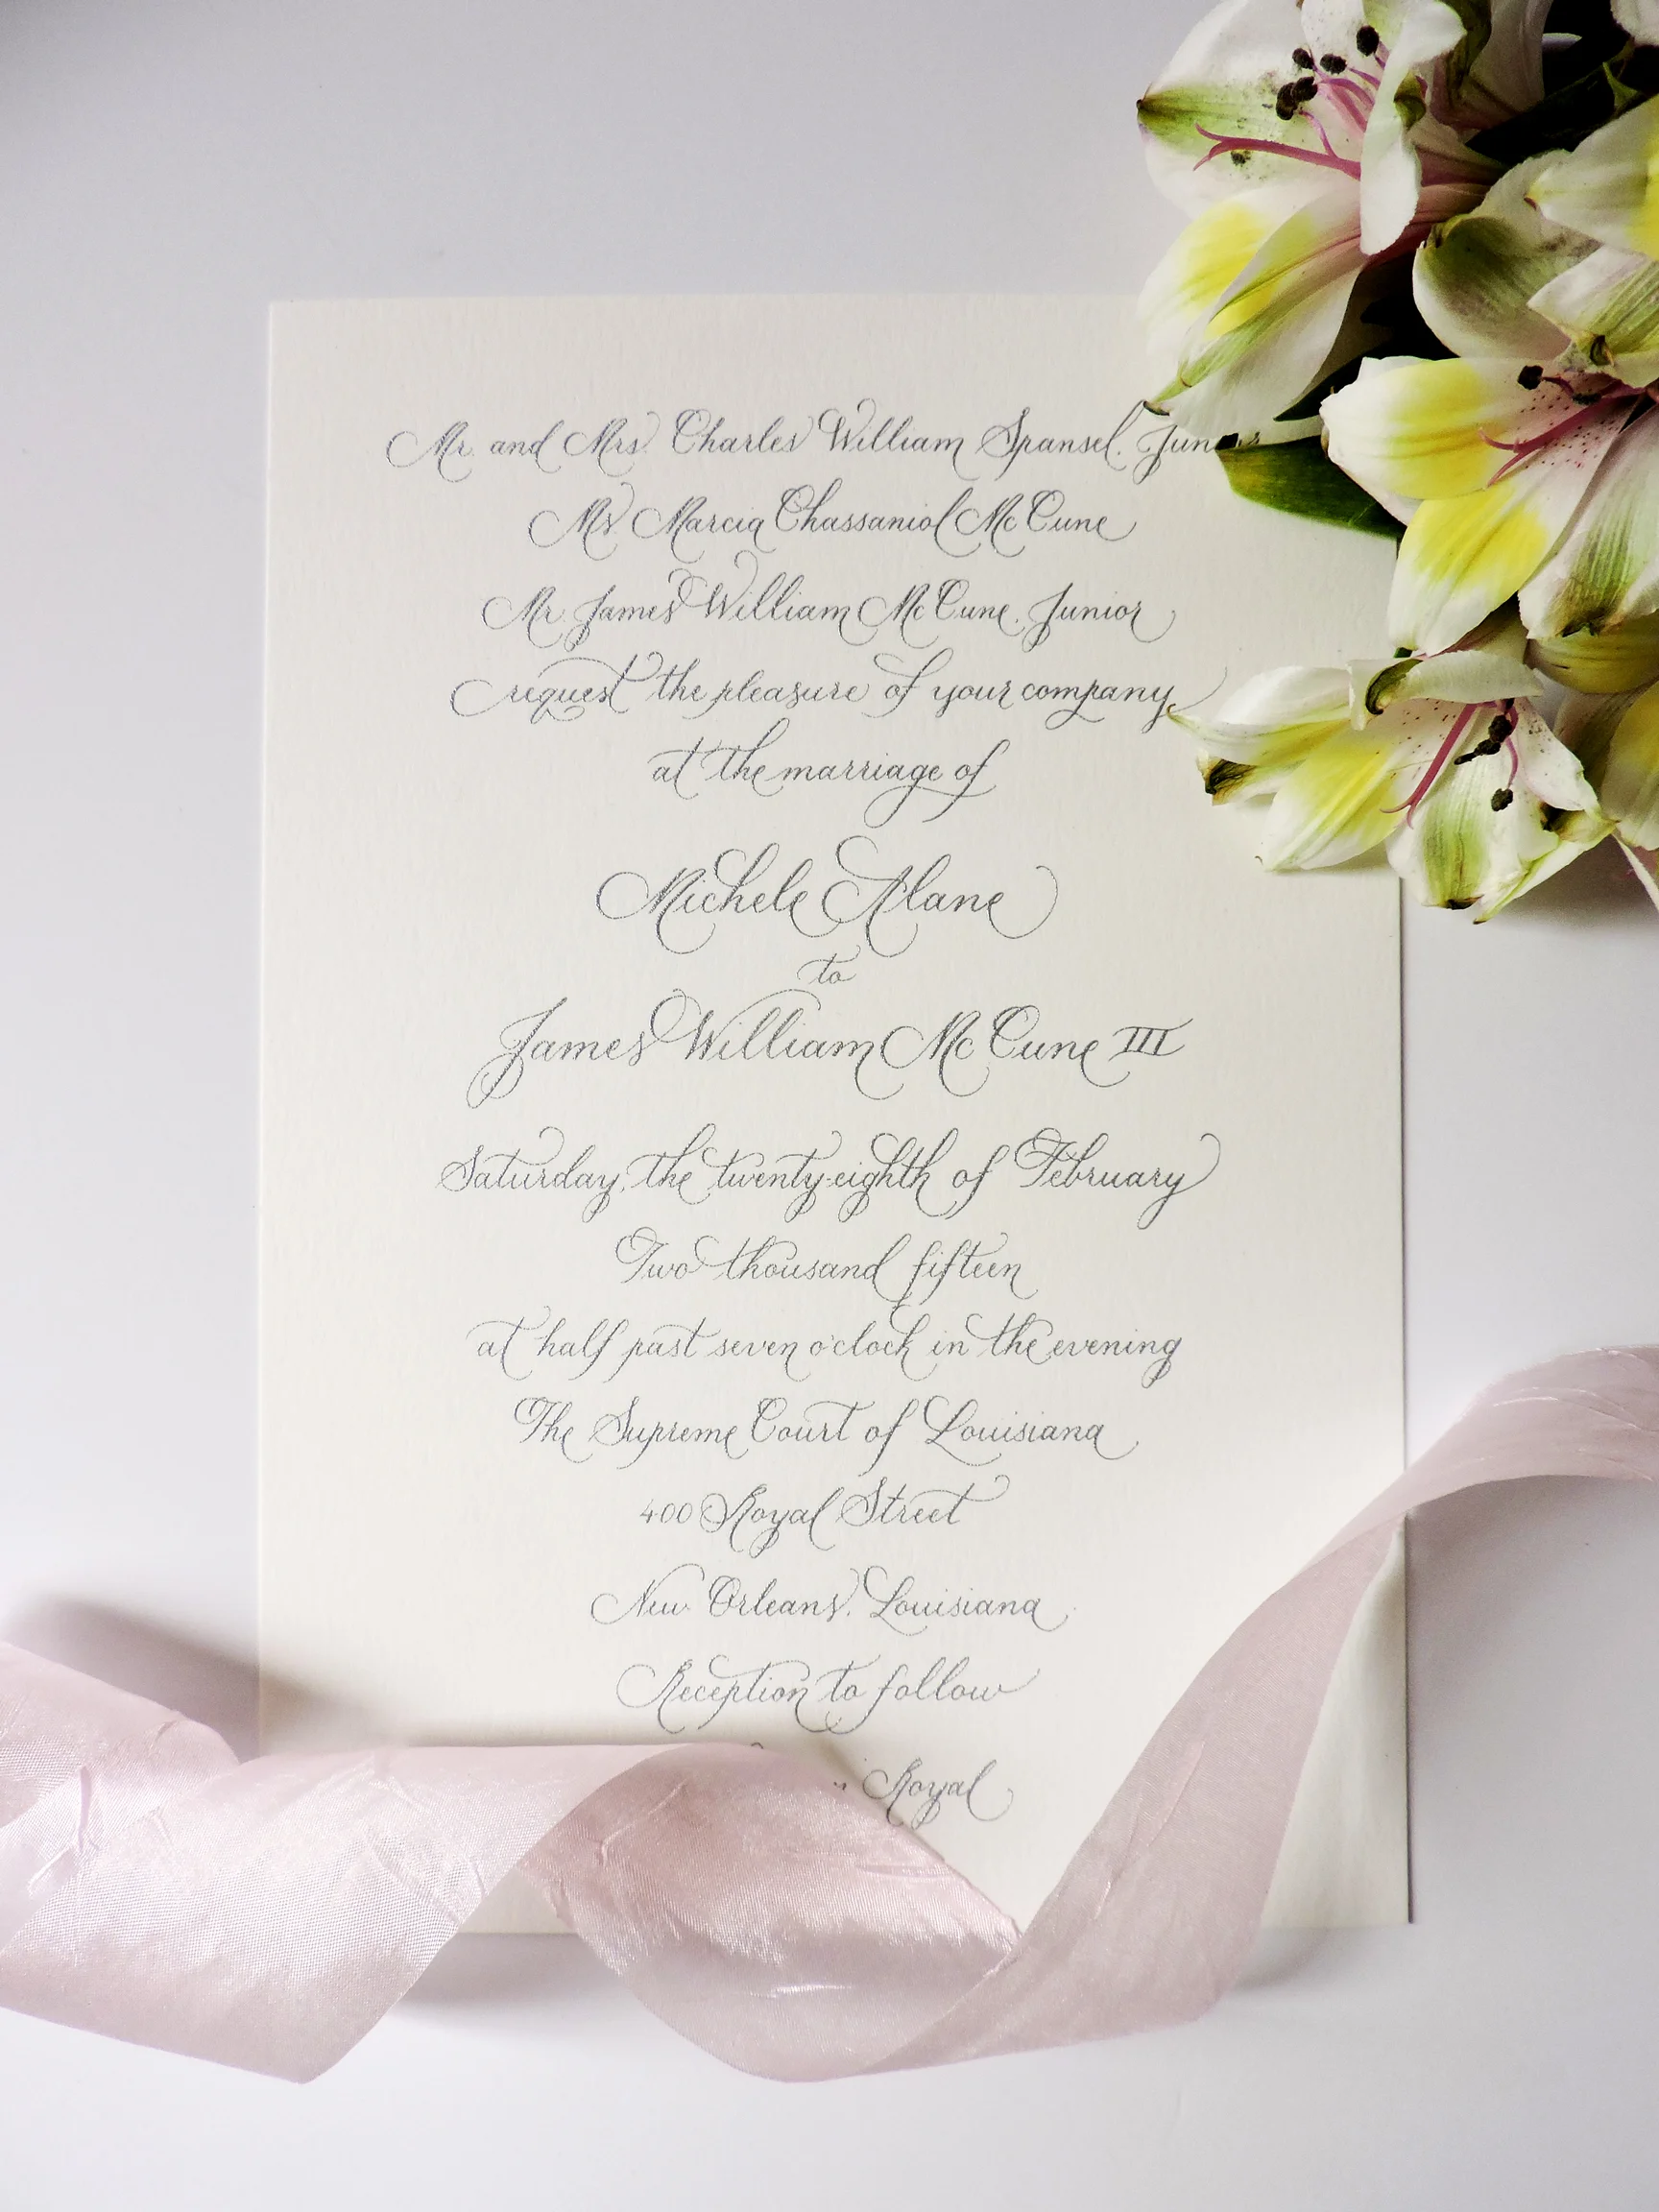 Mr. and Mrs. Charles William Spansel, Junior
Ms. Marcia Chassaniol McCune
Mr. James William McCune, Junior
request the pleasure of your company
at the marriage of
Michele Alane
to
James William McCune III
Saturday, the twenty-eighth of February
Two thousand fifteen
at half past seven o'clock in the evening
The Supreme Court of Louisiana
400 Royal Street
New Orleans, Louisiana
Reception to follow
Royal